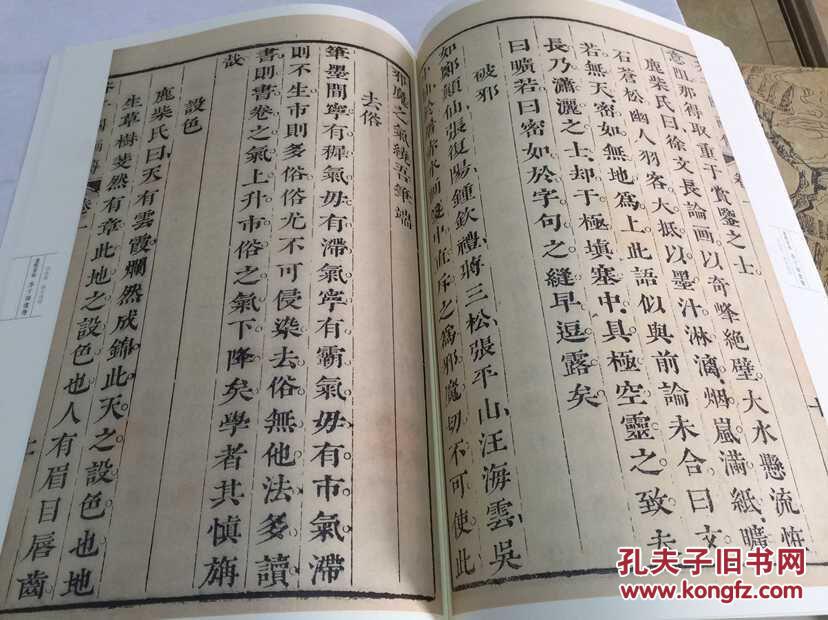 意肌那得取重于賞鑒之士
鹿柴氏曰徐文長論画以奇峰絶壁大水懸流怪
石蒼松幽人羽客大抵以墨汁淋漓烟嵐滿紙曠
若無天密如無地爲上此語似與前論未合曰文
長乃瀟灑之士却于極填塞中具極空靈之致夫
曰曠若曰密如於字句之縫早逗露矣
破邪
如鄭顛仙張復陽鍾欽禮蔣三松張平山汪海雲吳
小仙於屠赤水画箋中直斥之爲邪魔切不可使此
邪魔之氣繞吾筆端
去俗
筆墨間寧有穉氣毋有滯氣寧有霸氣毋有市氣滯
則不生市則多俗俗尤不可侵染去俗無他法多讀
書則書卷之氣上升市俗之氣下降矣學者其慎旃
哉
設色
鹿柴氏曰天有雲霞爛然成錦此天之設色也地
生草樹斐然有章此地之設色也人有眉目唇齒
卷一
孔夫子旧书网
www.kongfz.com